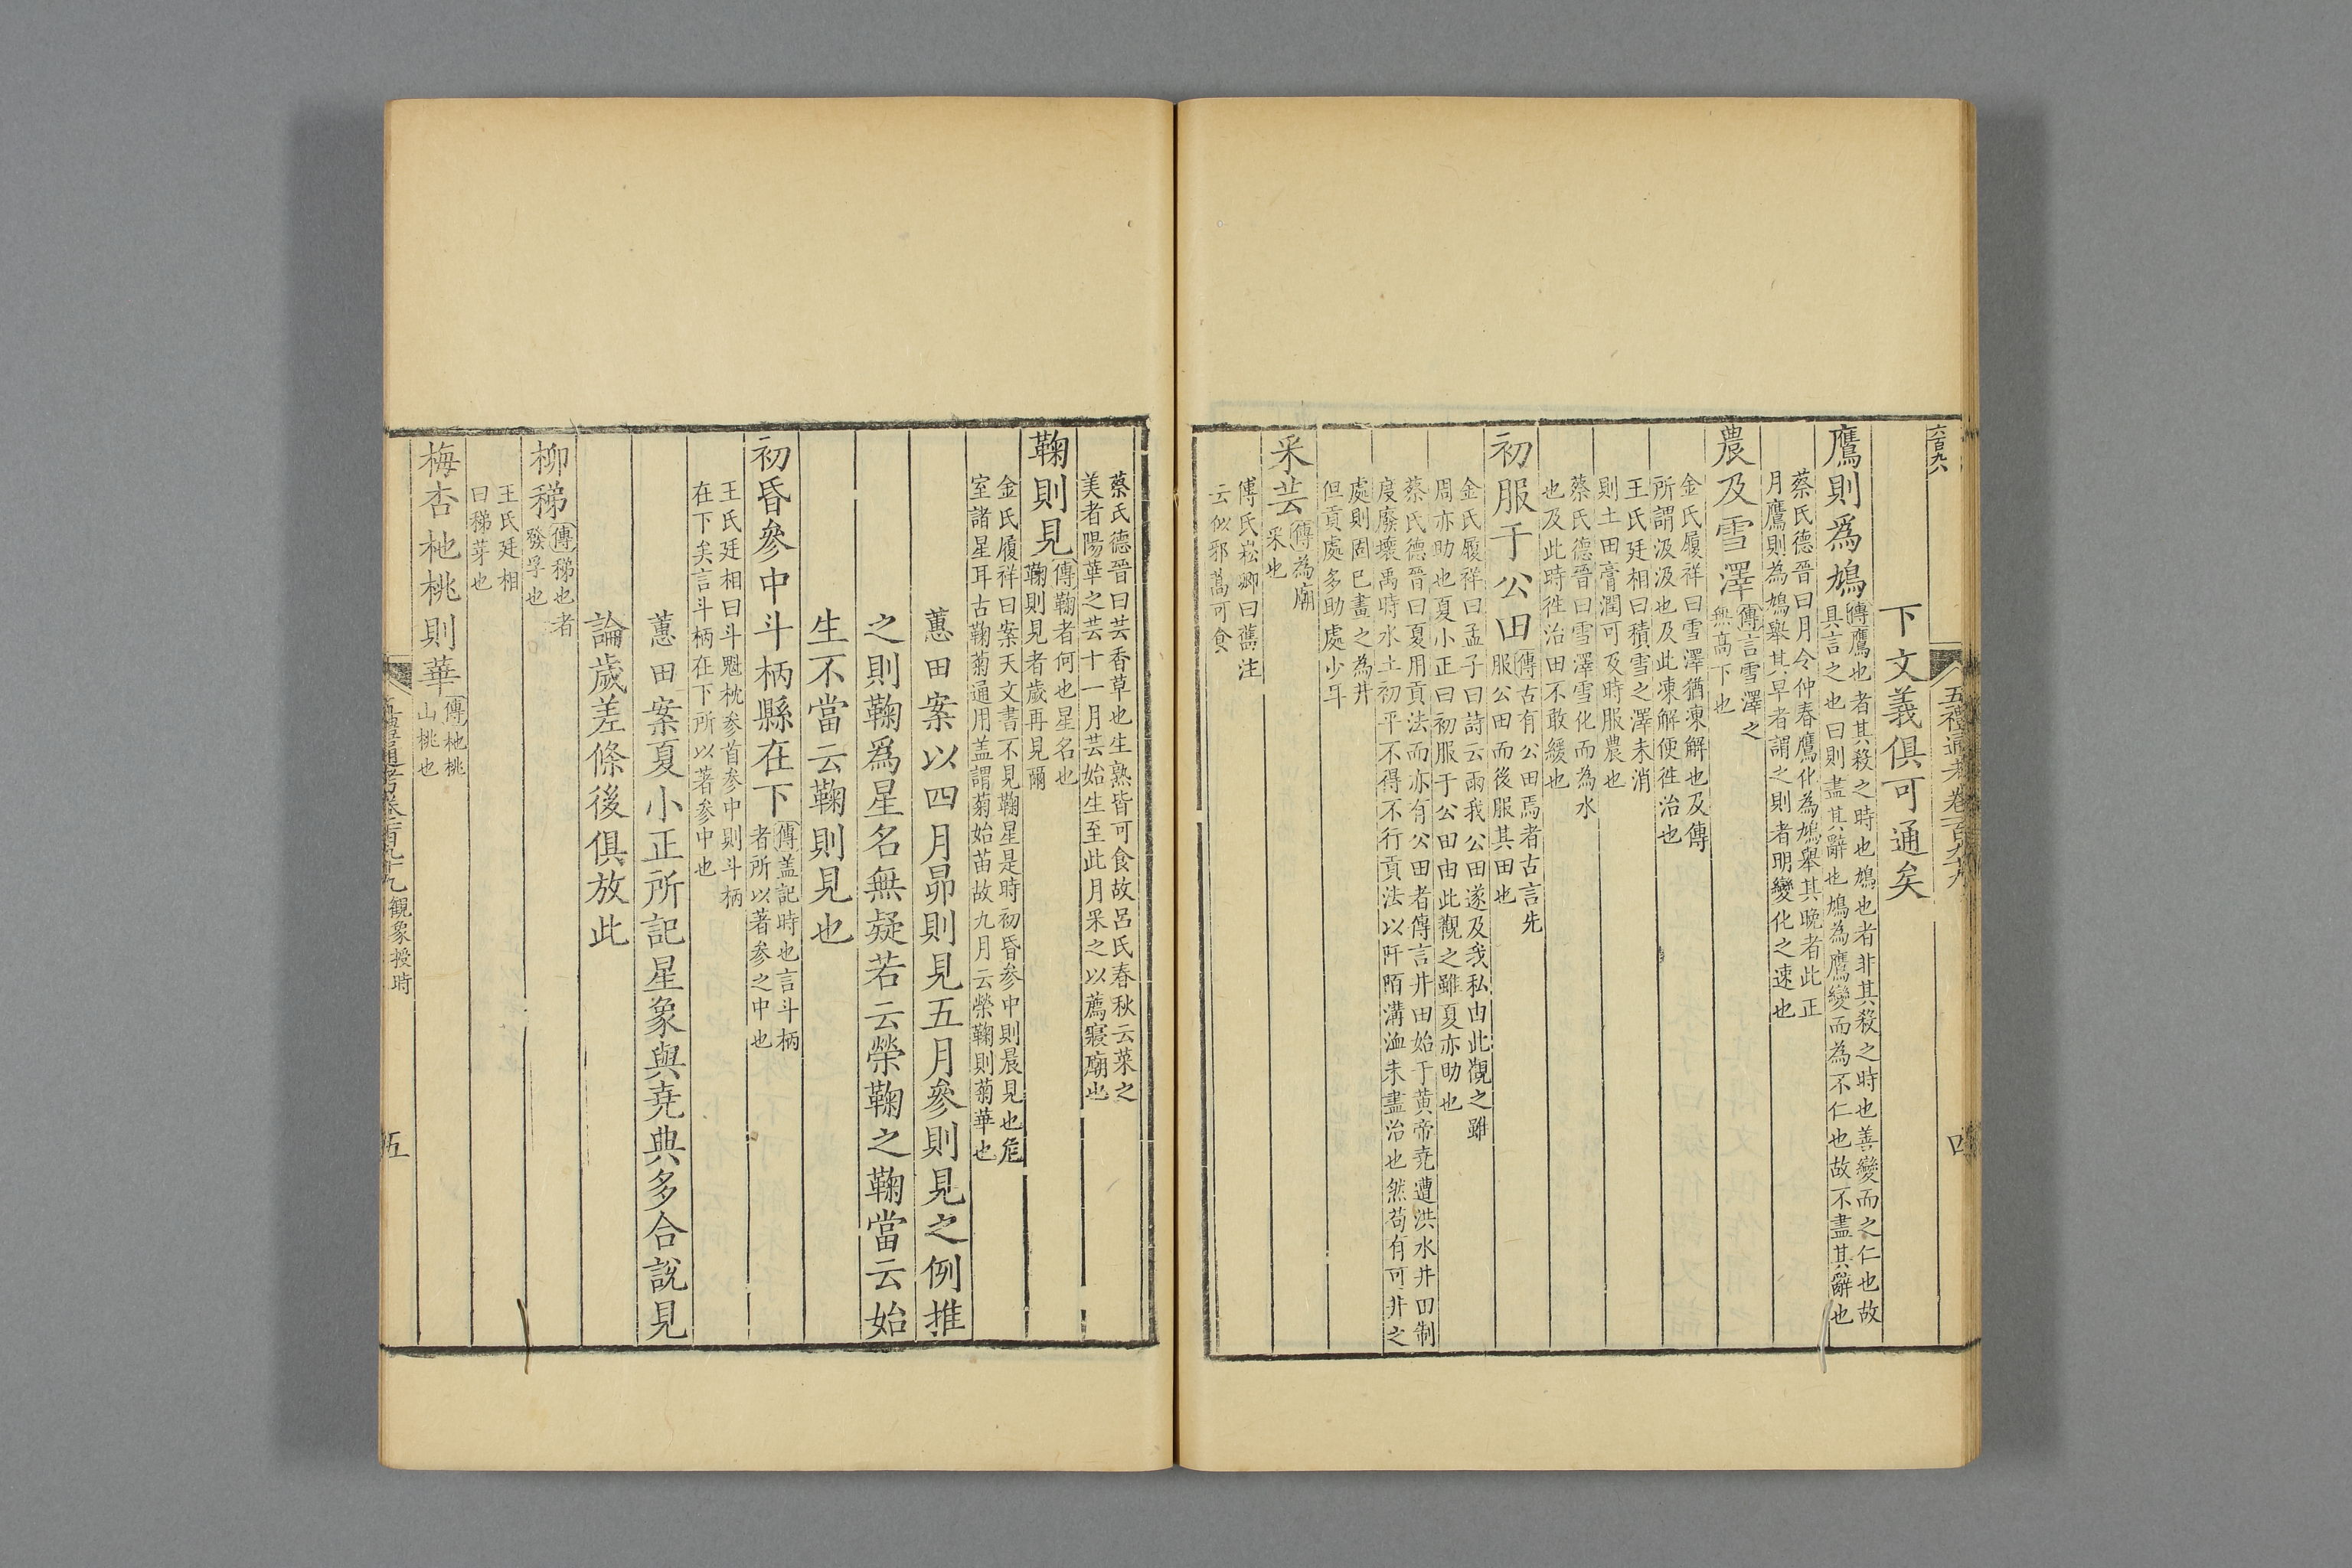 六百九八
五禮通考卷二百九十九
四
下文義俱可通矣
鷹則爲鳩傳鷹也者其殺之時也鳩也者非其殺之時也善變而之仁也故
具言之也曰則盡其辭也鳩為鷹變而為不仁也故不盡其辭也
蔡氏德晉曰月令仲春鷹化為鳩舉其晚者此正
月鷹則為鳩舉其早者謂之則者明變化之速也
農及雪澤傳言雪澤之
無高下也
金氏履祥曰雪澤猶凍解也及傳
所謂汲汲也及此凍解便徃治也
王氏廷相曰積雪之澤未消
則土田膏潤可及時服農也
蔡氏德晉曰雪澤雪化而為水
也及此時徃治田不敢緩也
初服于公田傳古有公田焉者古言先
服公田而後服其田也
金氏履祥曰孟子曰詩云雨我公田遂及我私由此觀之雖
周亦助也夏小正曰初服于公田由此觀之雖夏亦助也
蔡氏德晉曰夏用貢法而亦有公田者傳言井田始于黄帝尭遭洪水井田制
度廢壞禹時水土初平不得不行貢法以阡陌溝洫未盡治也然苟有可井之
處則固已畫之為井
但貢處多助處少耳
采芸傳為廟
采也
傅氏崧卿曰舊注
云似邪蒿可食
蔡氏德晉曰芸香草也生熟皆可食故呂氏春秋云菜之
美者陽華之芸十一月芸始生至此月采之以薦寢廟也
鞠則見傳鞠者何也星名也
鞠則見者歲再見爾
金氏履祥曰案天文書不見鞠星是時初昏參中則晨見也危
室諸星耳古鞠菊通用盖謂菊始苗故九月云榮鞠則菊華也
蕙田案以四月昴則見五月參則見之例推
之則鞠爲星名無疑若云榮鞠之鞠當云始
生不當云鞠則見也
初昏參中斗柄縣在下傳盖記時也言斗柄
者所以著參之中也
王氏廷相曰斗魁枕參首參中則斗柄
在下矣言斗柄在下所以著參中也
蕙田案夏小正所記星象與尭典多合說見
論歲差條後俱放此
柳稊傳稊也者
發孚也
王氏廷相
曰稊芽也
梅杏杝桃則華傳杝桃
山桃也
五禮通考卷二百九十九 觀象授時
五